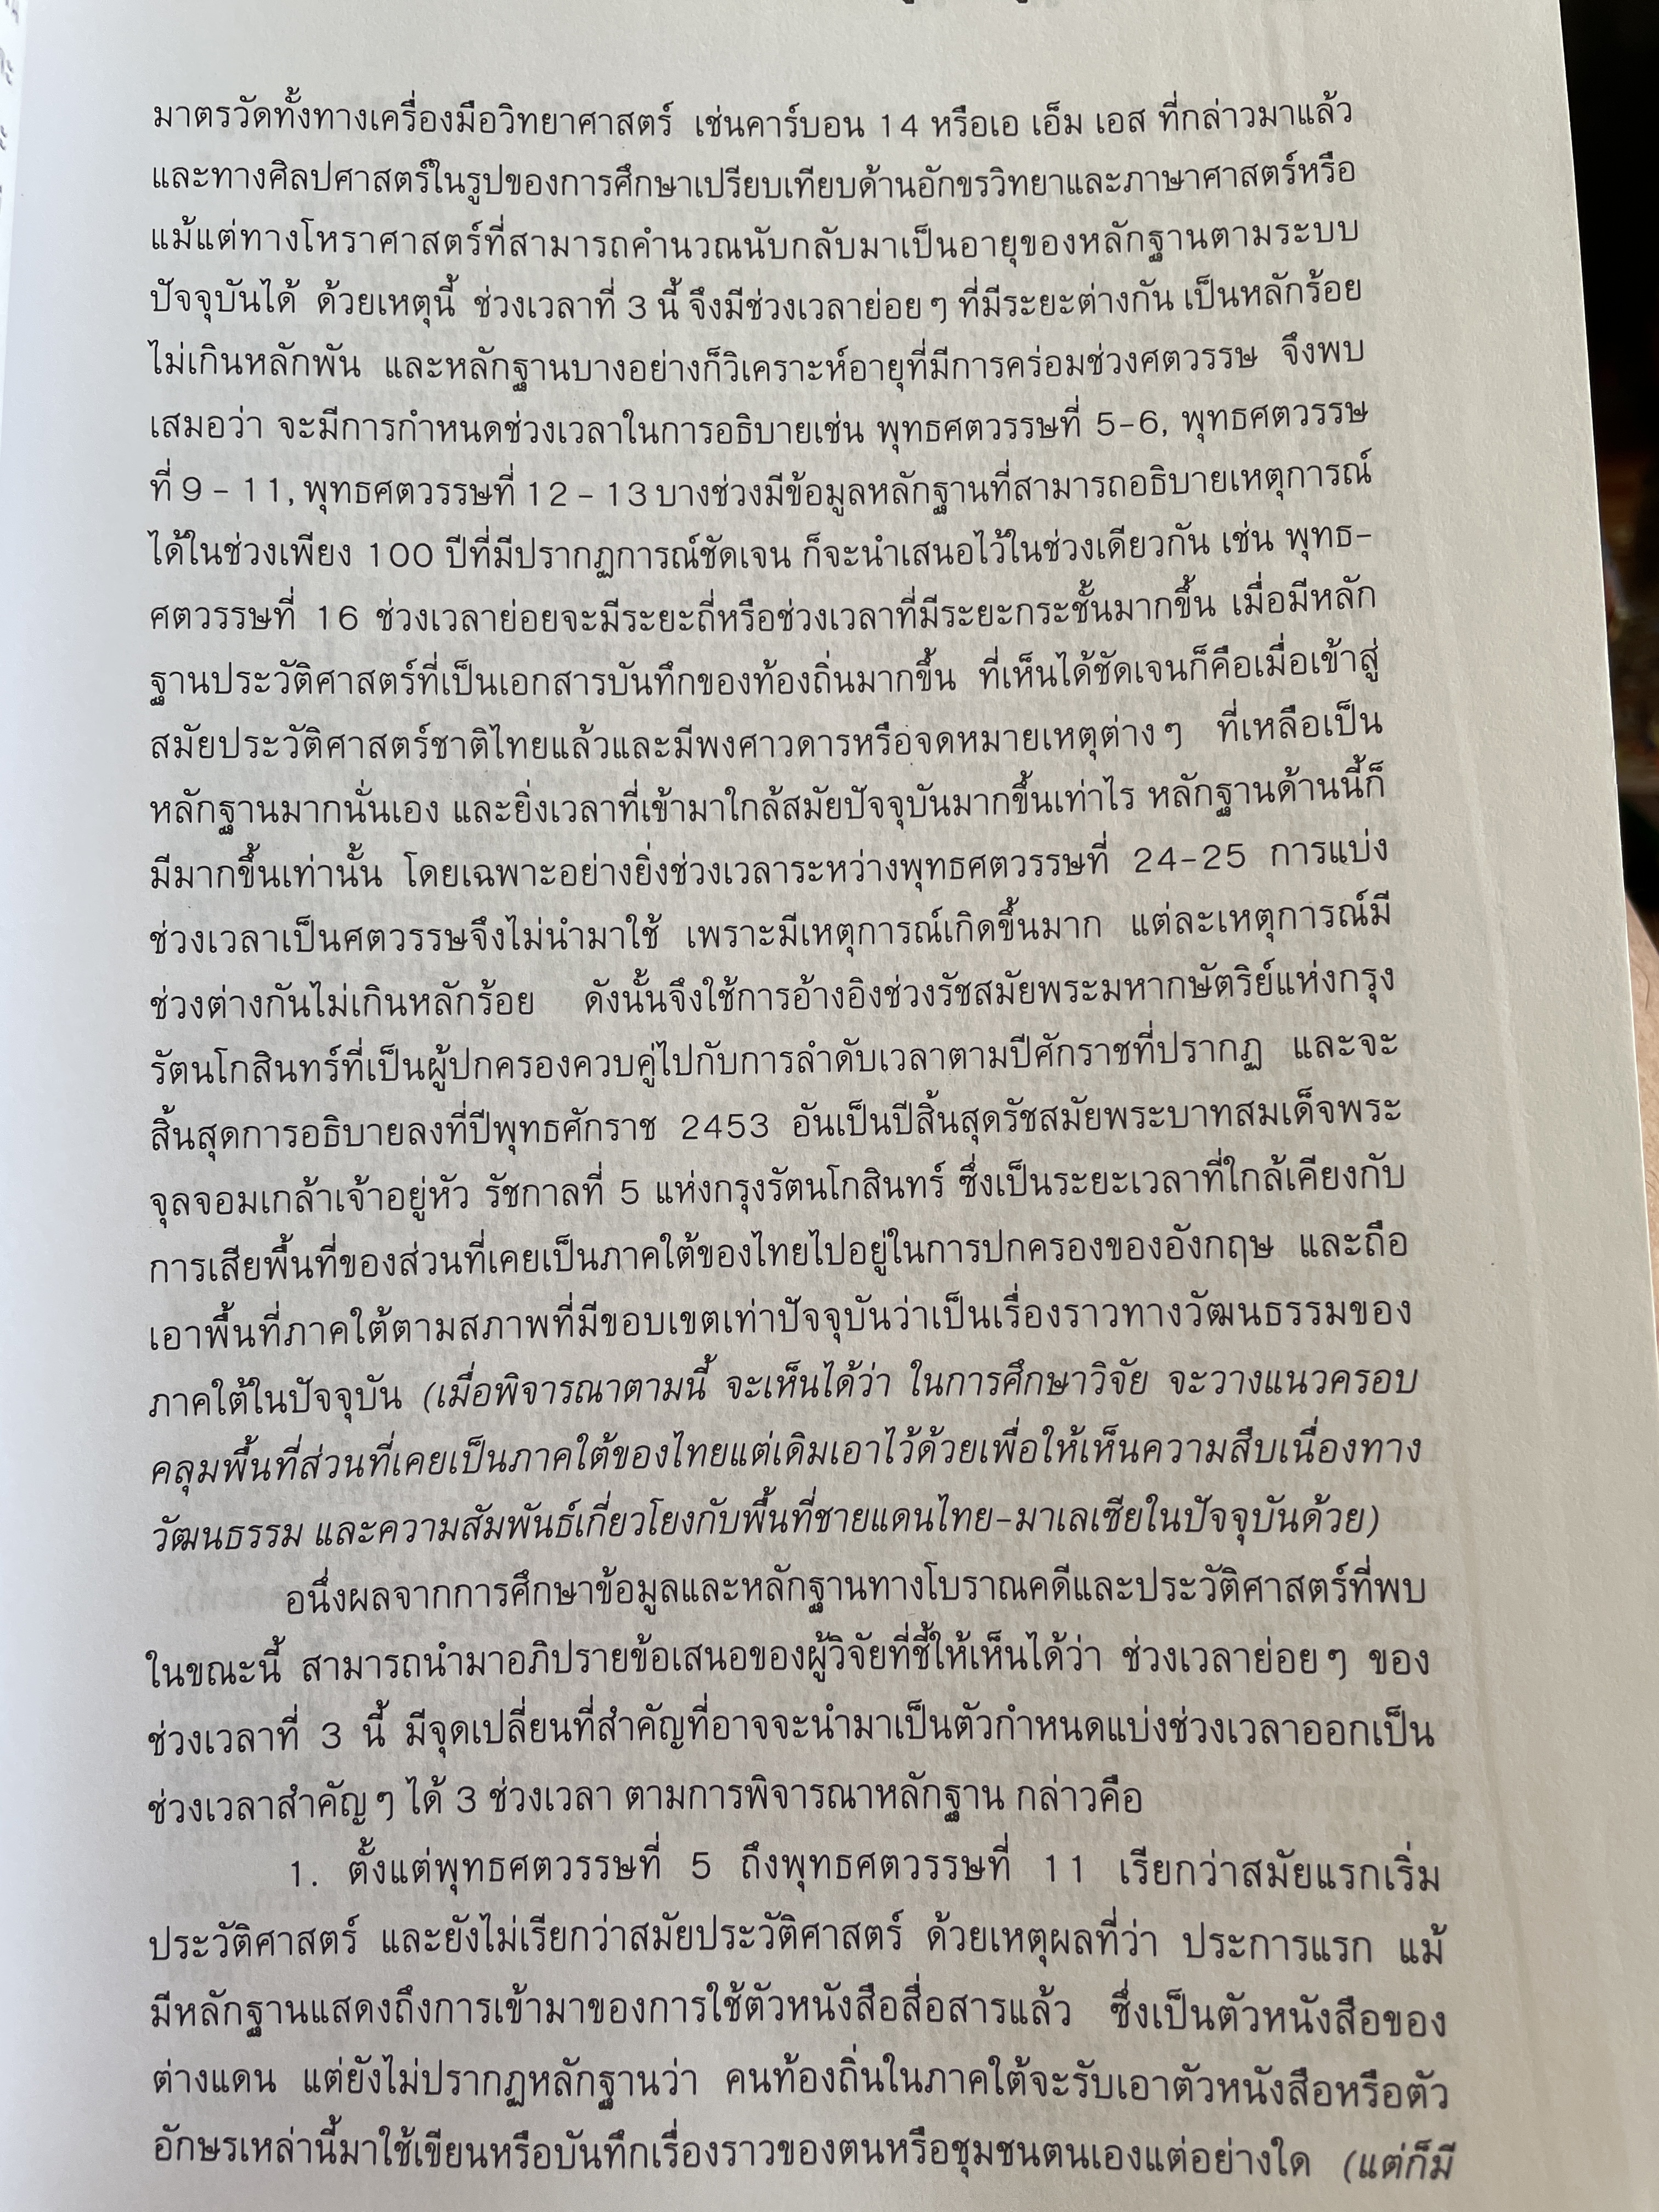 มาตรวัดทั้งทางเครื่องมือวิทยาศาสตร์ เช่นคาร์บอน 14 หรือเอ เอ็ม เอส ที่กล่าวมาแล้ว
และทางศิลปศาสตร์ในรูปของการศึกษาเปรียบเทียบด้านอักขรวิทยาและภาษาศาสตร์หรือ
แม้แต่ทางโหราศาสตร์ที่สามารถคำนวณนับกลับมาเป็นอายุของหลักฐานตามระบบ
ปัจจุบันได้ ด้วยเหตุนี้ ช่วงเวลาที่ 3 นี้ จึงมีช่วงเวลาย่อยๆ ที่มีระยะต่างกัน เป็นหลักร้อย
ไม่เกินหลักพัน และหลักฐานบางอย่างก็วิเคราะห์อายุที่มีการคร่อมช่วงศตวรรษ จึงพบ
เสมอว่า จะมีการกำหนดช่วงเวลาในการอธิบายเช่น พุทธศตวรรษที่ 5-6, พุทธศตวรรษ
ที่ 9 - 11, พุทธศตวรรษที่ 12 - 13 บางช่วงมีข้อมูลหลักฐานที่สามารถอธิบายเหตุการณ์
ได้ในช่วงเพียง 100 ปีที่มีปรากฏการณ์ชัดเจน ก็จะนำเสนอไว้ในช่วงเดียวกัน เช่น พุทธ-
ศตวรรษที่ 16 ช่วงเวลาย่อยจะมีระยะถี่หรือช่วงเวลาที่มีระยะกระชั้นมากขึ้น เมื่อมีหลัก
ฐานประวัติศาสตร์ที่เป็นเอกสารบันทึกของท้องถิ่นมากขึ้น ที่เห็นได้ชัดเจนก็คือเมื่อเข้าสู่
สมัยประวัติศาสตร์ชาติไทยแล้วและมีพงศาวดารหรือจดหมายเหตุต่างๆ ที่เหลือเป็น
หลักฐานมากนั่นเอง และยิ่งเวลาที่เข้ามาใกล้สมัยปัจจุบันมากขึ้นเท่าไร หลักฐานด้านนี้ก็
มีมากขึ้นเท่านั้น โดยเฉพาะอย่างยิ่งช่วงเวลาระหว่างพุทธศตวรรษที่ 24-25 การแบ่ง
ช่วงเวลาเป็นศตวรรษจึงไม่นำมาใช้ เพราะมีเหตุการณ์เกิดขึ้นมาก แต่ละเหตุการณ์มี
ช่วงต่างกันไม่เกินหลักร้อย ดังนั้นจึงใช้การอ้างอิงช่วงรัชสมัยพระมหากษัตริย์แห่งกรุง
รัตนโกสินทร์ที่เป็นผู้ปกครองควบคู่ไปกับการลำดับเวลาตามปีศักราชที่ปรากฏ และจะ
สิ้นสุดการอธิบายลงที่ปีพุทธศักราช 2453 อันเป็นปีสิ้นสุดรัชสมัยพระบาทสมเด็จพระ
จุลจอมเกล้าเจ้าอยู่หัว รัชกาลที่ 5 แห่งกรุงรัตนโกสินทร์ ซึ่งเป็นระยะเวลาที่ใกล้เคียงกับ
การเสียพื้นที่ของส่วนที่เคยเป็นภาคใต้ของไทยไปอยู่ในการปกครองของอังกฤษ และถือ
เอาพื้นที่ภาคใต้ตามสภาพที่มีขอบเขตเท่าปัจจุบันว่าเป็นเรื่องราวทางวัฒนธรรมของ
ภาคใต้ในปัจจุบัน (เมื่อพิจารณาตามนี้ จะเห็นได้ว่า ในการศึกษาวิจัย จะวางแนวครอบ
คลุมพื้นที่ส่วนที่เคยเป็นภาคใต้ของไทยแต่เดิมเอาไว้ด้วยเพื่อให้เห็นความสืบเนื่องทาง
วัฒนธรรม และความสัมพันธ์เกี่ยวโยงกับพื้นที่ชายแดนไทย-มาเลเซียในปัจจุบันด้วย)
อนึ่งผลจากการศึกษาข้อมูลและหลักฐานทางโบราณคดีและประวัติศาสตร์ที่พบ
ในขณะนี้ สามารถนำมาอภิปรายข้อเสนอของผู้วิจัยที่ชี้ให้เห็นได้ว่า ช่วงเวลาย่อยๆ ของ
ช่วงเวลาที่ 3 นี้ มีจุดเปลี่ยนที่สำคัญที่อาจจะนำมาเป็นตัวกำหนดแบ่งช่วงเวลาออกเป็น
ช่วงเวลาสำคัญๆ ได้ 3 ช่วงเวลา ตามการพิจารณาหลักฐาน กล่าวคือ
1. ตั้งแต่พุทธศตวรรษที่ 5 ถึงพุทธศตวรรษที่ 11 เรียกว่าสมัยแรกเริ่ม
ประวัติศาสตร์ และยังไม่เรียกว่าสมัยประวัติศาสตร์ ด้วยเหตุผลที่ว่า ประการแรก แม้
มีหลักฐานแสดงถึงการเข้ามาของการใช้ตัวหนังสือสื่อสารแล้ว ซึ่งเป็นตัวหนังสือของ
ต่างแดน แต่ยังไม่ปรากฏหลักฐานว่า คนท้องถิ่นในภาคใต้จะรับเอาตัวหนังสือหรือตัว
อักษรเหล่านี้มาใช้เขียนหรือบันทึกเรื่องราวของตนหรือชุมชนตนเองแต่อย่างใด (แต่ก็มี